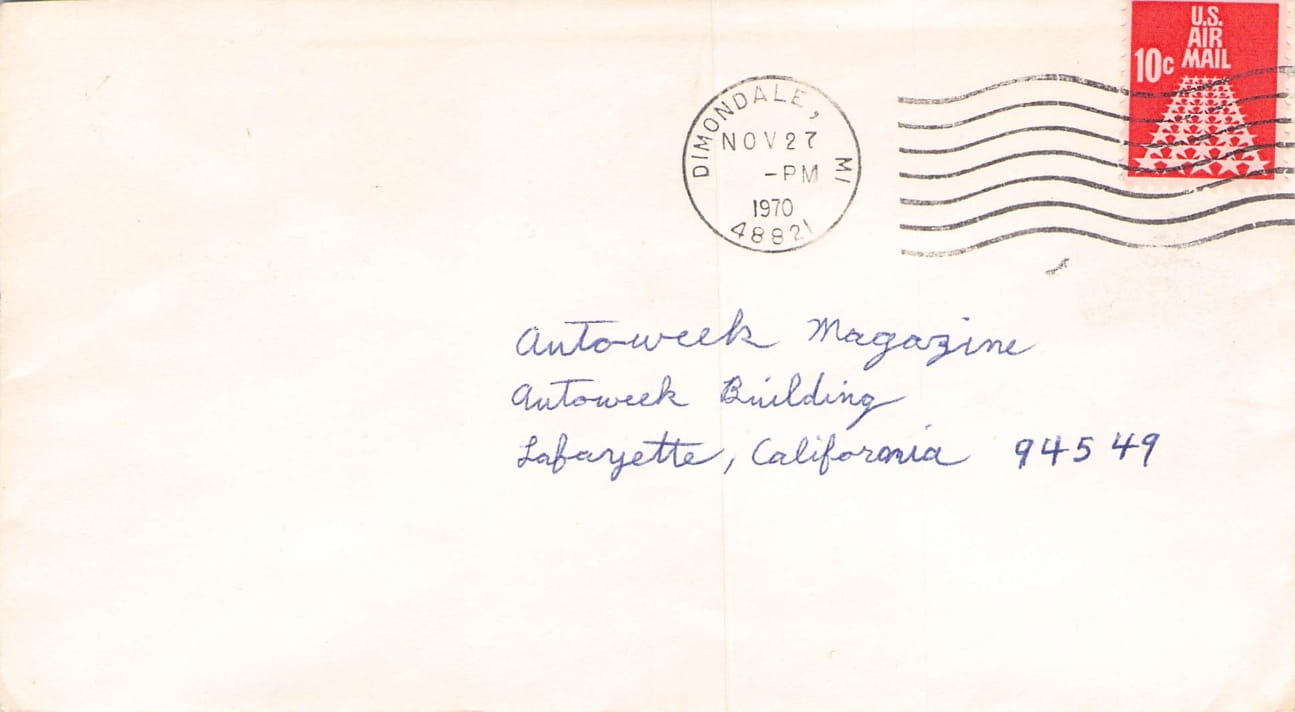 U.S.
AIR
MAIL
10c
DIMONDALE, MI
NOV 27
-PM
1970
48821
Autoweek Magazine
Autoweek Building
Lafayette, California 94549